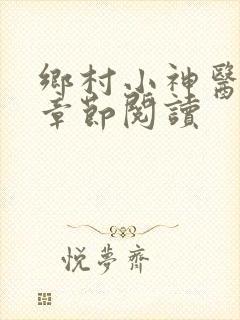 鄉村小神醫
章節閱讀
悅夢齋